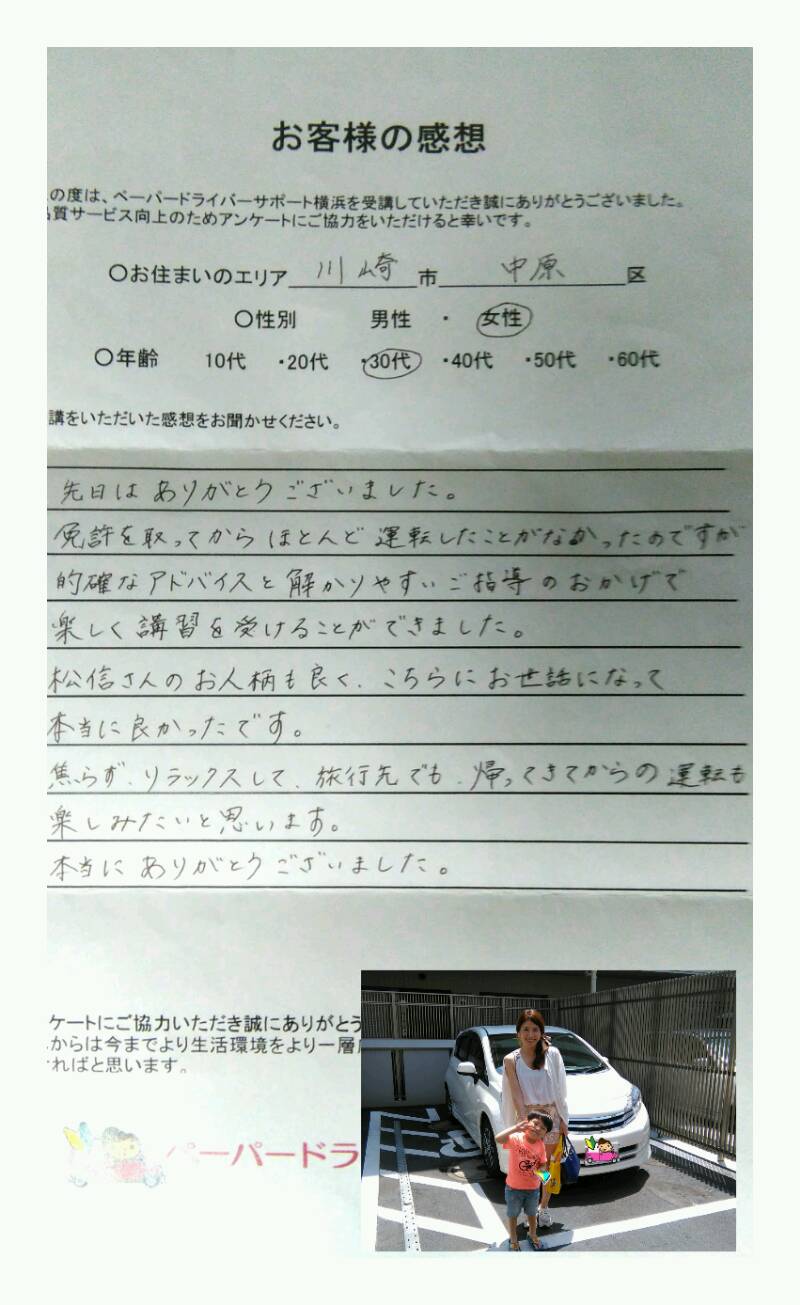 お客様の感想
の度は、ペーパードライバーサポート横浜を受講していただき誠にありがとうございました。
質サービス向上のためアンケートにご協力をいただけると幸いです。
〇お住まいのエリア 川崎 市 中原 区
〇性別 男性 ・ 女性
〇年齢 10代 ・20代 ・30代 ・40代 ・50代 ・60代
講をいただいた感想をお聞かせください。
先日は ありがとうございました。
免許を取ってから ほとんど 運転したことがなかったのですが
的確なアドバイスと解かりやすいご指導のおかげで
楽しく講習を受けることができました。
松信さんのお人柄も良く、こちらにお世話になって
本当に良かったです。
焦らず、リラックスして、旅行先でも、帰ってきてからの運転も
楽しみたいと思います。
本当に ありがとうございました。
ケートにご協力いただき誠にありがとう
からは今までより生活環境をより一層
ればと思います。
ペーパードラ